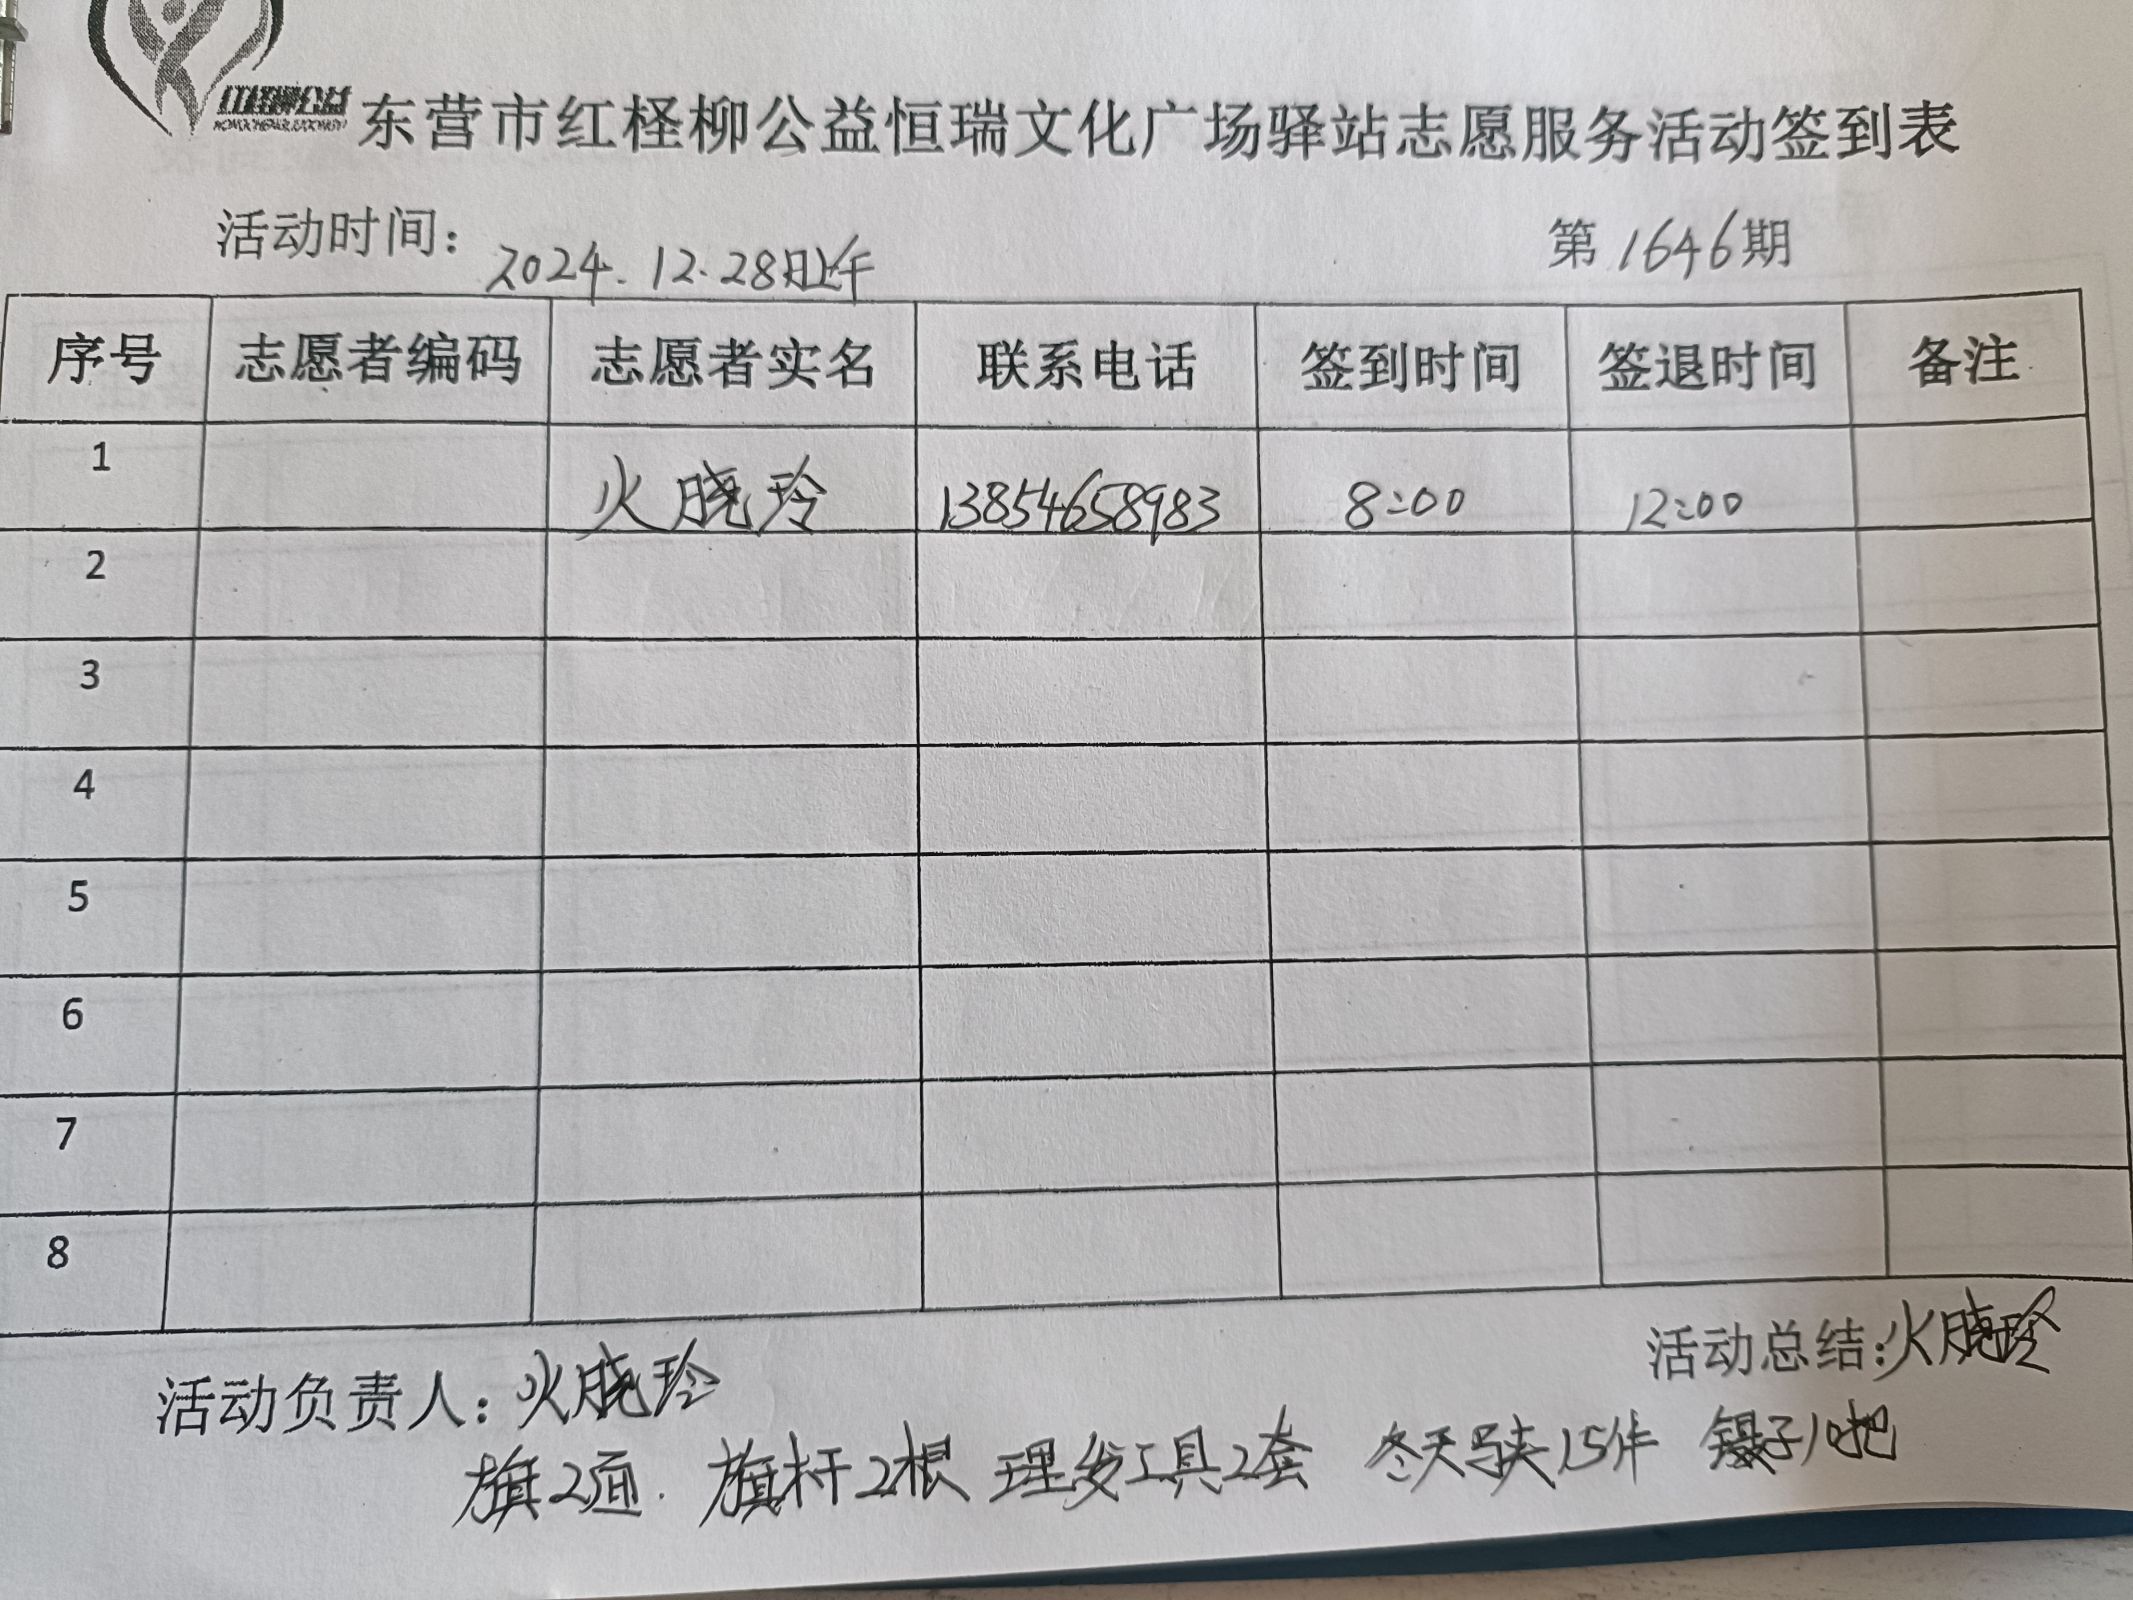 红柽柳公益
东营市红柽柳公益恒瑞文化广场驿站志愿服务活动签到表
活动时间： 2024.12.28日上午 第1646期
序号 志愿者编码 志愿者实名 联系电话 签到时间 签退时间 备注
1 火晓玲 13854658983 8:00 12:00
2
3
4
5
6
7
8
活动总结：火晓玲
活动负责人：火晓玲
旗2面. 旗杆2根 理发工具2套 冬天马夹15件 镊子10把